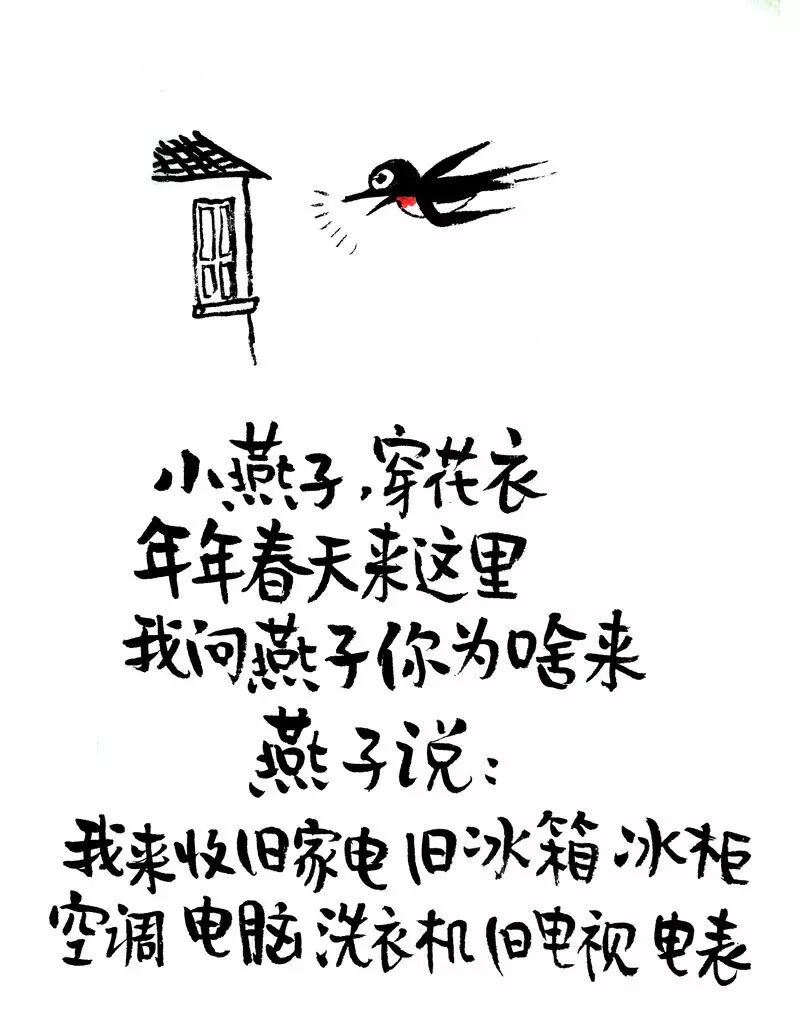 小燕子,穿花衣
年年春天来这里
我问燕子你为啥来
燕子说:
我来收旧家电 旧冰箱 冰柜
空调 电脑 洗衣机 旧电视 电表